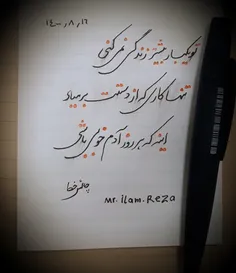 ۱۴۰۰,۸,۱۶
تو یکبار بیشتر زندگی نمی‌کنی
تنها کاری که از دستت برمیاد
اینه که هر روز آدم خوبی باشی
Mr.ilam.Reza